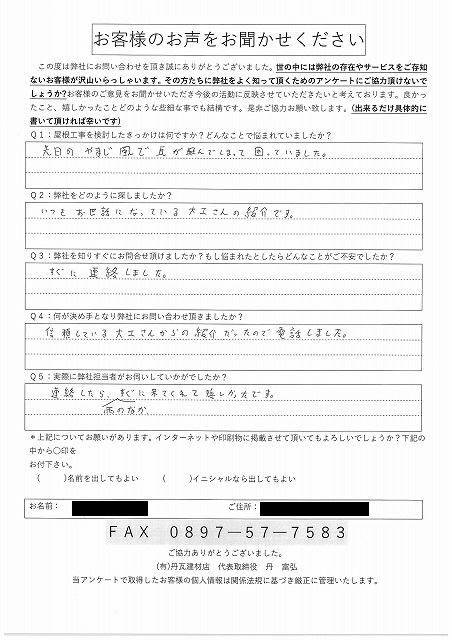 お客様のお声をお聞かせください
この度は弊社にお問い合わせを頂き誠にありがとうございました。世の中には弊社の存在やサービスをご存知
ないお客様が沢山いらっしゃいます。その方たちに弊社をよく知って頂くためのアンケートにご協力頂けないで
しょうか?お客様のご意見をお聞かせいただき今後の活動に反映させていただきたいと考えております。良かっ
たこと、嬉しかったことどのような些細な事でも結構です。是非ご協力お願い致します。(出来るだけ具体的に
書いて頂ければ幸いです)
Q１：屋根工事を検討したきっかけは何ですか？どんなことで悩まれていましたか？
先日の やまじ風で 瓦が飛んでしまって 困っていました。
Q２：弊社をどのように探しましたか？
いつも お世話になっている 大工さんの紹介です。
Q３：弊社を知りすぐにお問合せ頂けましたか？もし悩まれたとしたらどんなことがご不安でしたか？
すぐに 連絡しました。
Q４：何が決め手となり弊社にお問い合わせ頂きましたか？
信頼している 大工さんからの 紹介だったので 電話しました。
Q５：実際に弊社担当者がお伺いしていかがでしたか？
連絡したら、すぐに来てくれて 嬉しかったです。
雨のなか
＊上記についてお願いがあります。インターネットや印刷物に掲載させて頂いてもよろしいでしょうか？下記の
中から〇印を
お付下さい。
（　　）名前を出してもよい　　（　　）イニシャルなら出してもよい
お名前：　　ご住所：
ＦＡＸ　０８９７－５７－７５８３
ご協力ありがとうございました。
(有)丹瓦建材店　代表取締役　丹　富弘
当アンケートで取得したお客様の個人情報は関係法規に基づき厳正に管理いたします。